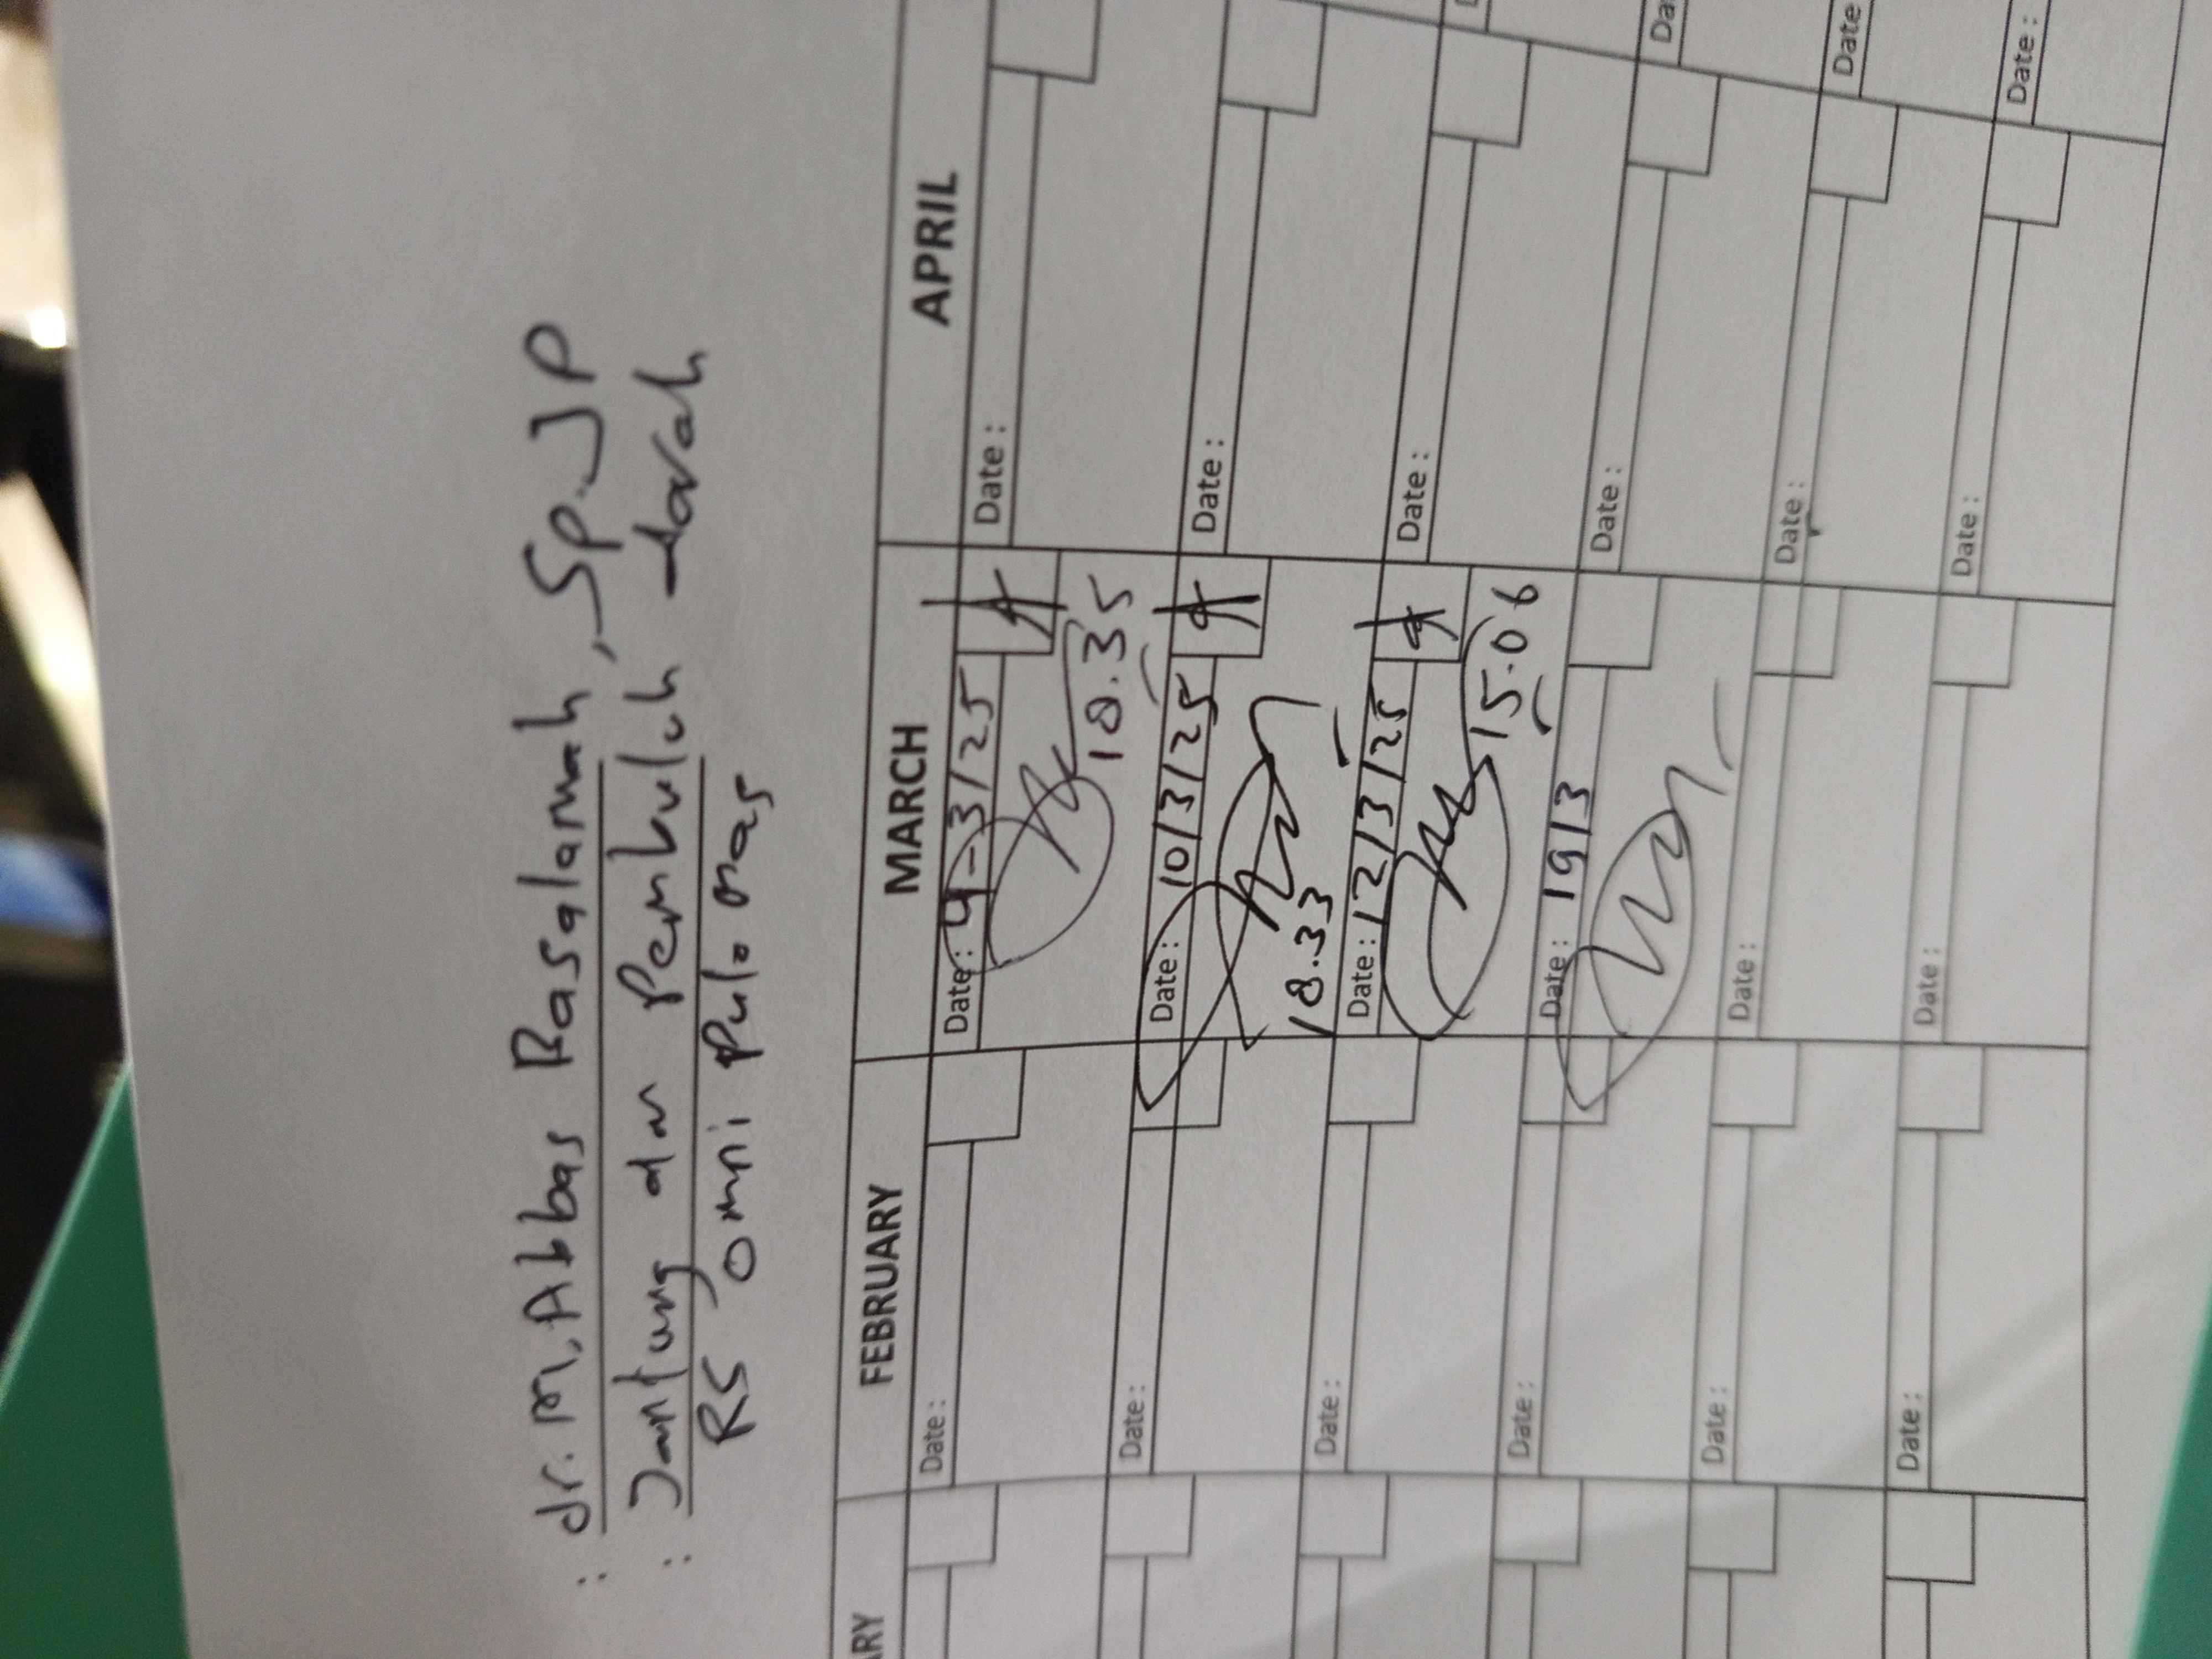 : dr. M. Abbas Basalamah, Sp.JP
: Jantung dan Pembuluh darah
RS Omni Pulo mas
ARY FEBRUARY MARCH APRIL
Date : Date : 4-3/25 Date :
18.35
Date : Date : 10/3/25 Date :
18.33
Date : Date : 12/3/25 Date :
15.06
Date : Date : 19/3 Date : Date
Date : Date : Date : Date
Date : Date : Date : Date :